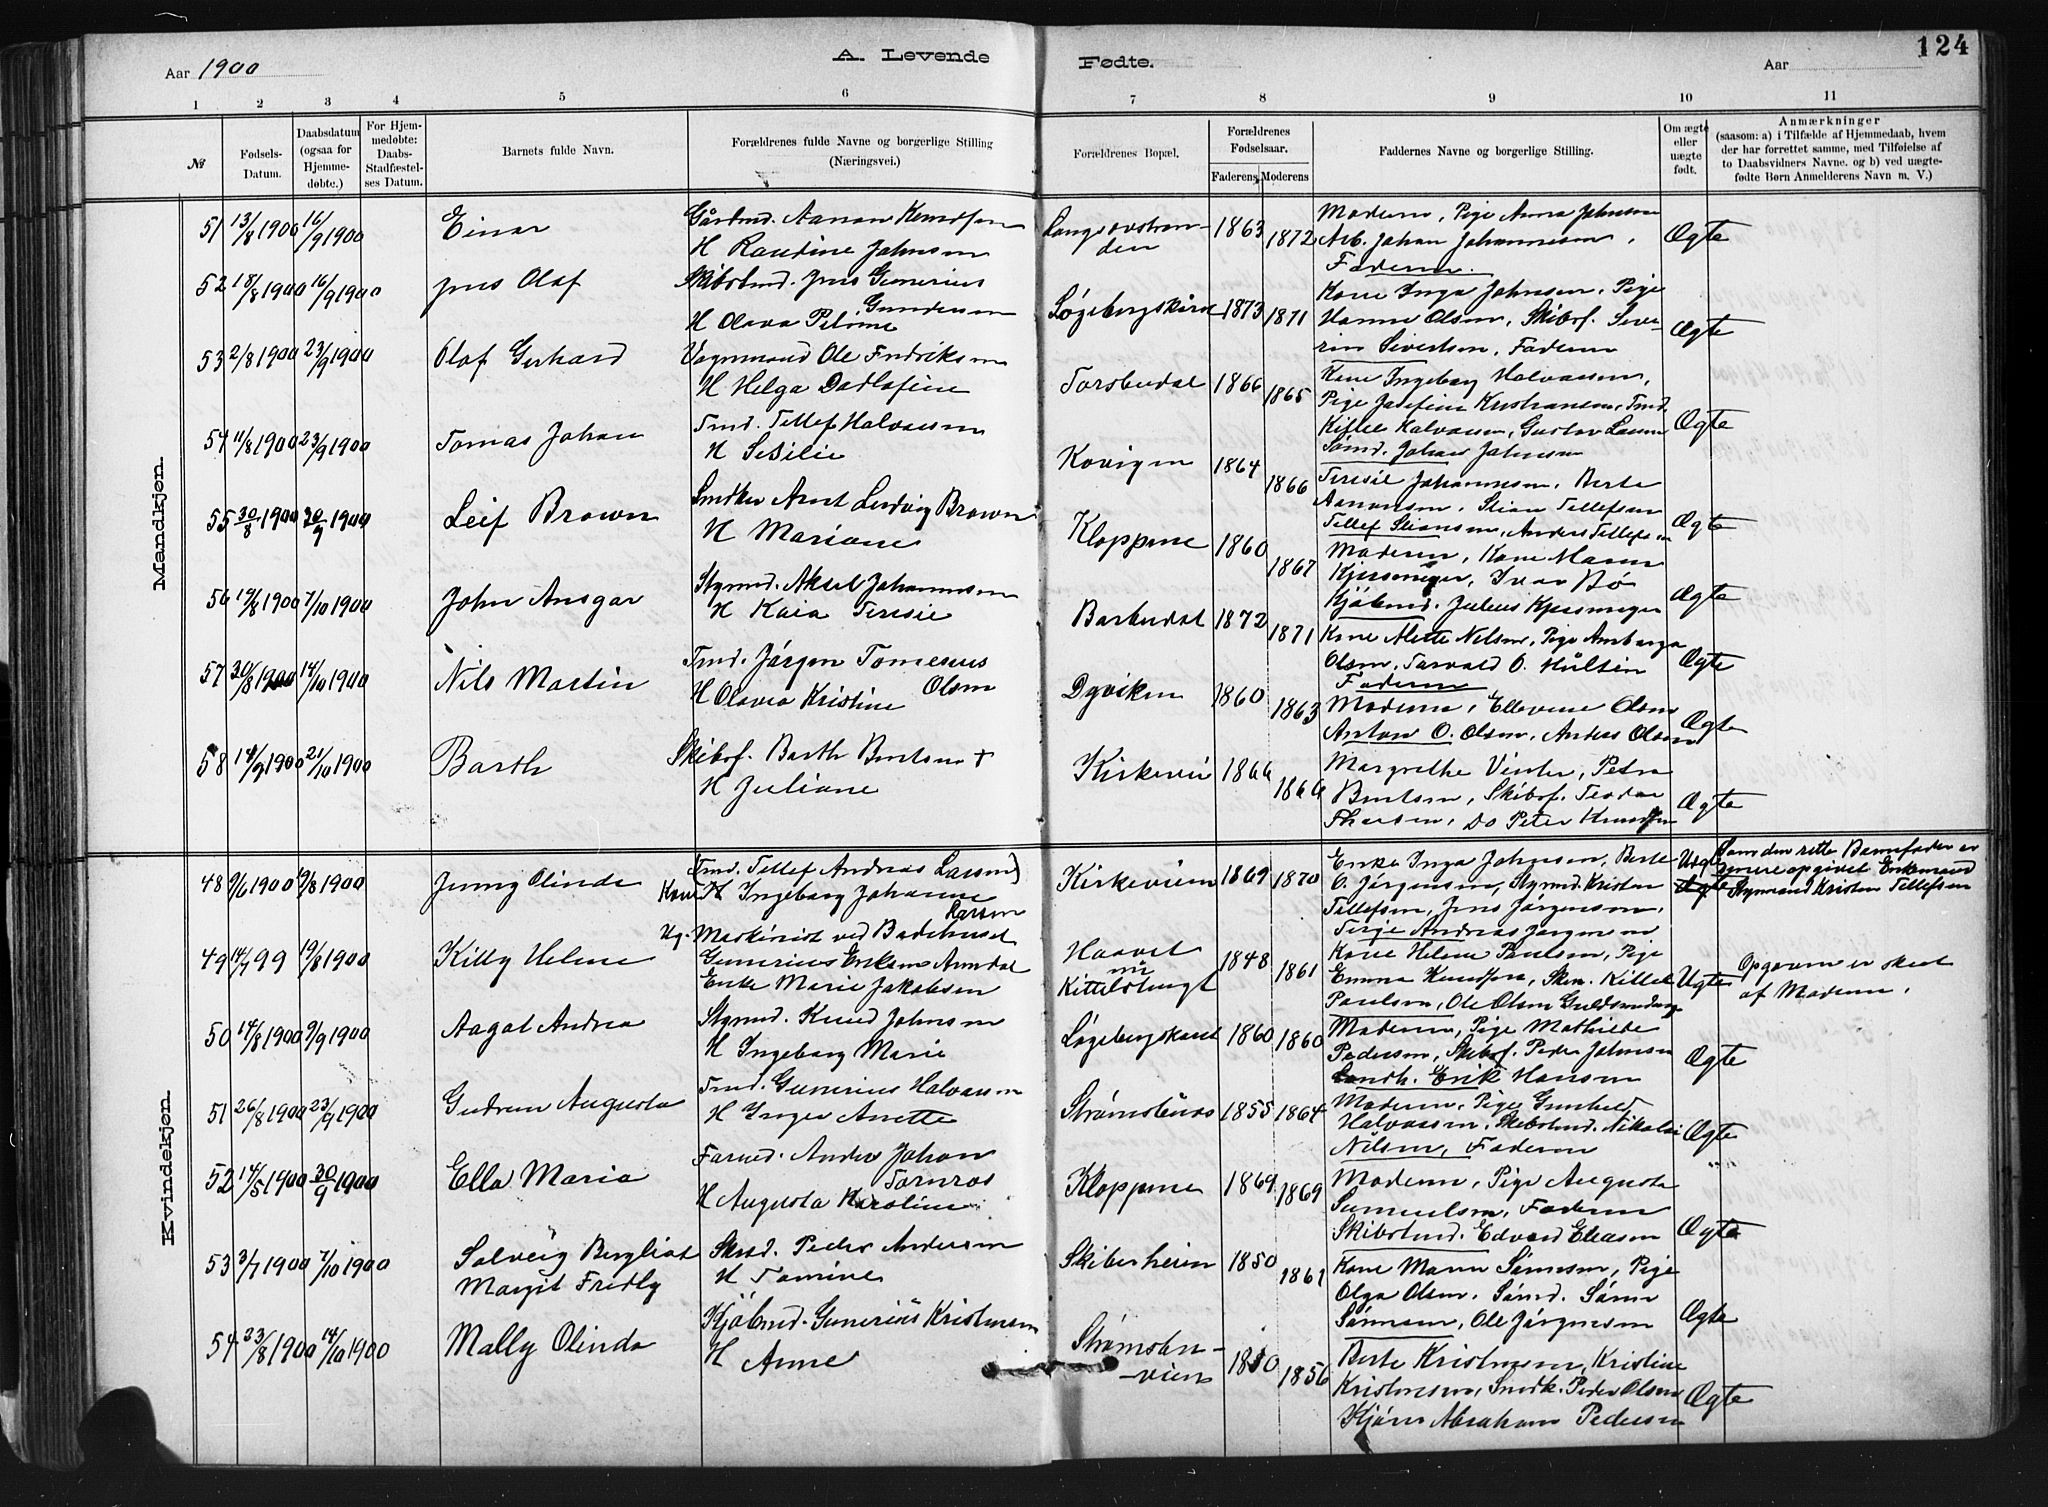 Aar 1900
A. Levende
Fødte.
Aar
124
1 2 3 4 5 6 7 8 9 10 11
№
Fødsels-Datum.
Daabsdatum (ogsaa for Hjemme-døbte.)
For Hjem-medøbte: Daabs-Stadfæstel-ses Datum.
Barnets fulde Navn.
Forældrenes fulde Navne og borgerlige Stilling (Næringsvei.)
Forældrenes Bopæl.
Forældrenes Fødselsaar.
Faderens Moderens
Faddernes Navne og borgerlige Stilling.
Om ægte eller uægte født.
Anmærkninger
(saasom: a) i Tilfælde af Hjemmedaab, hvem
der har forrettet samme, med Tilføielse af
to Daabsvidners Navne. og b) ved uægte-
fødte Børn Anmelderens Navn m. V.)
Mandkjøn.
51 13/8 1900 16/9 1900 Einar
Aanon Knudsen
H Raudine Johnsen
1863 1872
Moderen, Pige Anna Johnsen
Arb. Johan Johannesen,
Faderen.
Ægte
52 18/8 1900 16/9 1900 Jens Olaf
Skibstmd. Jens Gunerius
Gundersen
H Olava Petrine
Løgebergskaret 1873 1871
Kone Inga Johnsen, Pige
Hanna Olsen, Skibsf. Seve-
rin Sivertsen, Faderen
Ægte
53 2/8 1900 23/9 1900 Olaf Gerhard
Vognmand Ole Fredriksen
H Helga Dadlofine
Torsbudal 1866 1865
Kone Ingeborg Halvorsen,
Pige Josefine Kristiansen, Tmd.
Kittel Halvorsen, Gustav Larsen
Ægte
54 11/8 1900 23/9 1900 Tomas Johan
Tmd. Tellef Halvorsen
H Sesilie
Kovigen 1864 1866
Sømd. Johan Johnsen
Teresie Johannesen, Berte
Aanonsen, Stian Tellefsen
Tellef Stiansen, Anders Tellefsen
Ægte
55 30/8 1900 30/9 1900 Leif Brown
Snedker Arnt Ludvig Brown
H Mariane
Kloppene 1860 1867
Moderen, Kone Maren
Kjersmeyer, Ivar Bø
Kjøbmd. Julius Kjersmeyer
Ægte
56 19/8 1900 7/10 1900 John Ansgar
Stymd. Aksel Johannesen
H Kaia Teresie
Barbudal 1872 1871
Kone Alette Nilsen, Pige Amborga
Olsen, Torvald O. Hultin
Faderen
Ægte
57 30/8 1900 14/10 1900 Nils Martin
Tmd. Jørgen Tomesius
Olsen
H Olavia Kristine
Dyviken 1860 1863
Moderen, Ellevine Olsen
Anton O. Olsen, Anders Olsen
Ægte
58 14/9 1900 21/10 1900 Barth
Skibsf. Barth Berntsen +
H Juliane
Kirkevin 1866 1866
Margrethe Vinter, Petra
Berntsen, Skibsf. Teodor
Thorsen, Do Peter Knudsen
Ægte
Kvindekjøn.
48 9/6 1900 19/8 1900 Jenny Olinda
(Tmd. Tellef Andreas Larsen)
Kone H Ingeborg Johanne
Larsen
Kirkeveien 1869 1870
Enke Inga Johnsen, Berte
O. Jørgensen, Stymd. Kristen
Tellefsen, Jens Jørgensen,
Terje Andreas Jørgensen
Uægte
Som den rette Barnefader er
senere opgivet Enkemand
Styrmand Kristen Tellefsen
49 14/7 99 19/8 1900 Kitty Helene
Ug. Maskinist ved Badehuset
Gunerius Eriksen Arendal
Enke Marie Jakobsen
Haavet
nu
1848 1861
Kone Helene Paulsen, Pige
Emma Knudsen, Skm. Kittel
Paulsen, Ole Olsen
Uægte
Opgaven er skeet
af Moderen.
50 14/8 1900 9/9 1900 Aagot Andrea
Stymd. Knud Johnsen
H Ingeborg Marie
Løgebergskaret 1860 1860
Moderen, Pige Mathilde
Pedersen, Skibsf. Peder Johnsen
Landh. Erik Hansen
Ægte
51 26/8 1900 23/9 1900 Gudrun Augusta
Tmd. Gunerius Halvorsen
H Inger Anette
Strømsbuås 1855 1864
Moderen, Pige Gunhild
Halvorsen, Skibstmd. Nikolai
Nilsen, Faderen
Ægte
52 14/5 1900 30/9 1900 Ella Maria
Farmd. Anders Johan
Tornros
H Augusta Karoline
Kloppene 1869 1869
Moderen, Pige Augusta
Samuelsen, Faderen
Skibstmd. Edvard Eliasen
Ægte
53 3/7 1900 7/10 1900 Solveig Bergliot
Margit Fredly
Skrd. Peder Andersen
H Tomine
Skibenheien 1850 1861
Kone Maren Sørensen, Pige
Olga Olsen, Sømd. Søren
Sørensen, Ole Jørgensen
Ægte
54 23/8 1900 14/10 1900 Mally Olinda
Kjøbmd. Gunerius Kristensen
H Anne
Strømsbu-
veien
1850 1856
Berte Kristensen, Kristine
Kristensen, Snedk. Peder Olsen
Abraham Pedersen
Ægte